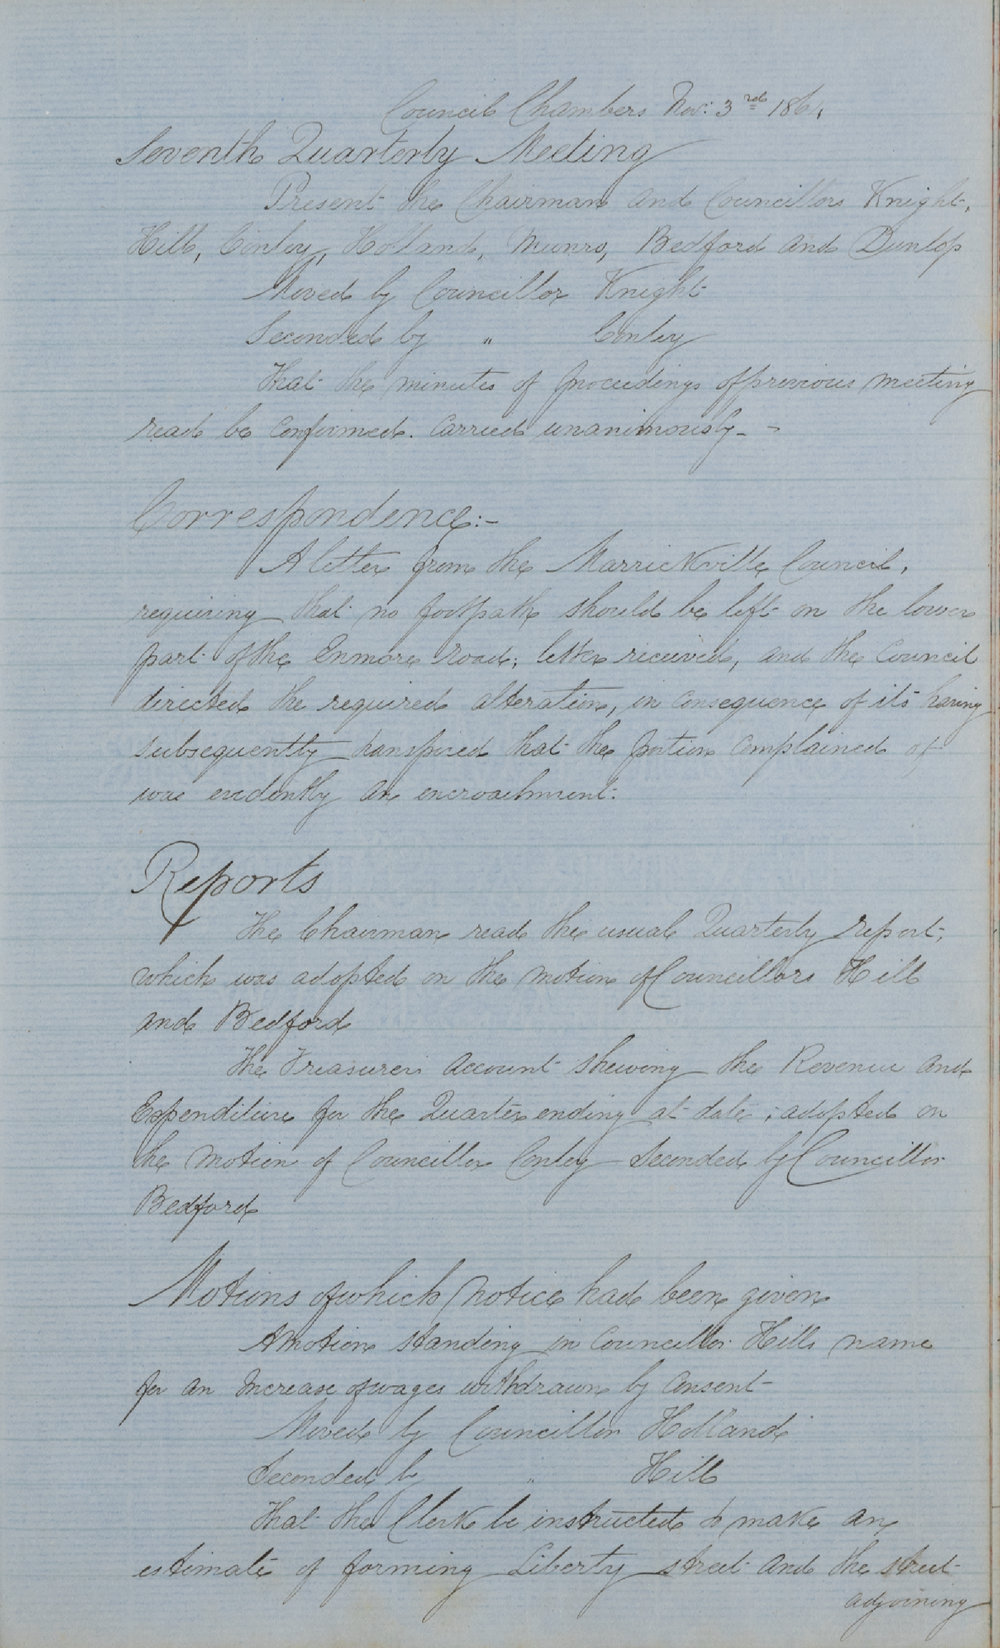 Council Chambers Nov: 3rd 186,
Seventh Quarterly Meeting
Present the Chairman and Councillors Knight,
Hill, Conley, Holland, Munro, Bedford and Dunlop
Moved by Councillor Knight
Seconded by " Conley
That the minutes of proceedings of previous meeting
read be confirmed. Carried unanimously. -
Correspondence:-
A letter from the Marrickville Council,
requiring that no footpath should be left on the lower
part of the Enmore road; letter received, and the Council
directed the required alteration, in consequence of its having
subsequently transpired that the portion complained of
was evidently an encroachment.
Reports
The Chairman read the usual Quarterly report,
which was adopted on the motion of Councillors Hill
and Bedford
The Treasurers account shewing the Revenue and
Expenditure for the Quarter ending at date; adopted on
the motion of Councillor Conley Seconded by Councillor
Bedford
Motions of which notice had been given
A motion standing in Councillor Hills name
for an Increase of wages withdrawn by consent
Moved by Councillor Holland
Seconded by " Hill
That the Clerk be instructed to make an
estimate of forming Liberty street and the street
adjoining